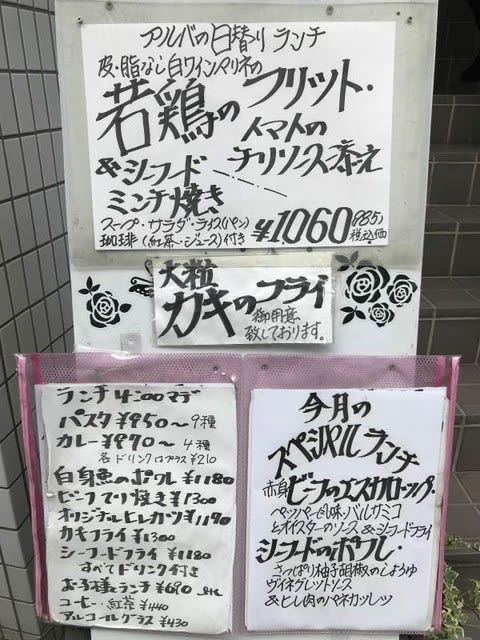 アルバの日替りランチ
皮・脂なし白ワインマリネの
若鶏のフリット・
トマトの
チリソース添え
&シーフード
ミンチ焼き
スープ・サラダ・ライス(パン)
珈琲(紅茶・ジュース)付き
¥1060(985)
税込価
大粒
カキのフライ
御用意
致しております。
ランチ4:00マデ
パスタ¥950〜9種
カレー¥970〜4種
各ドリンクプラス¥210
白身魚のポワレ¥1180
ビーフてり焼き¥1300
オリジナルヒレカツ¥1190
カキフライ¥1300
シーフードフライ¥1180
すべてドリンク付き
お子様ランチ¥690 etc
コーヒー・紅茶¥440
アルコールグラス¥430
今月の
スペシャルランチ
赤身ビーフのエスカロップ・
ペッパー風味・バルサミコ
とオイスターのソース&シーフードフライ
シーフードのポワレ・
さっぱり柚子胡椒のしょうゆ
ヴィネグレットソース
&ヒレ肉のパネカッレツ